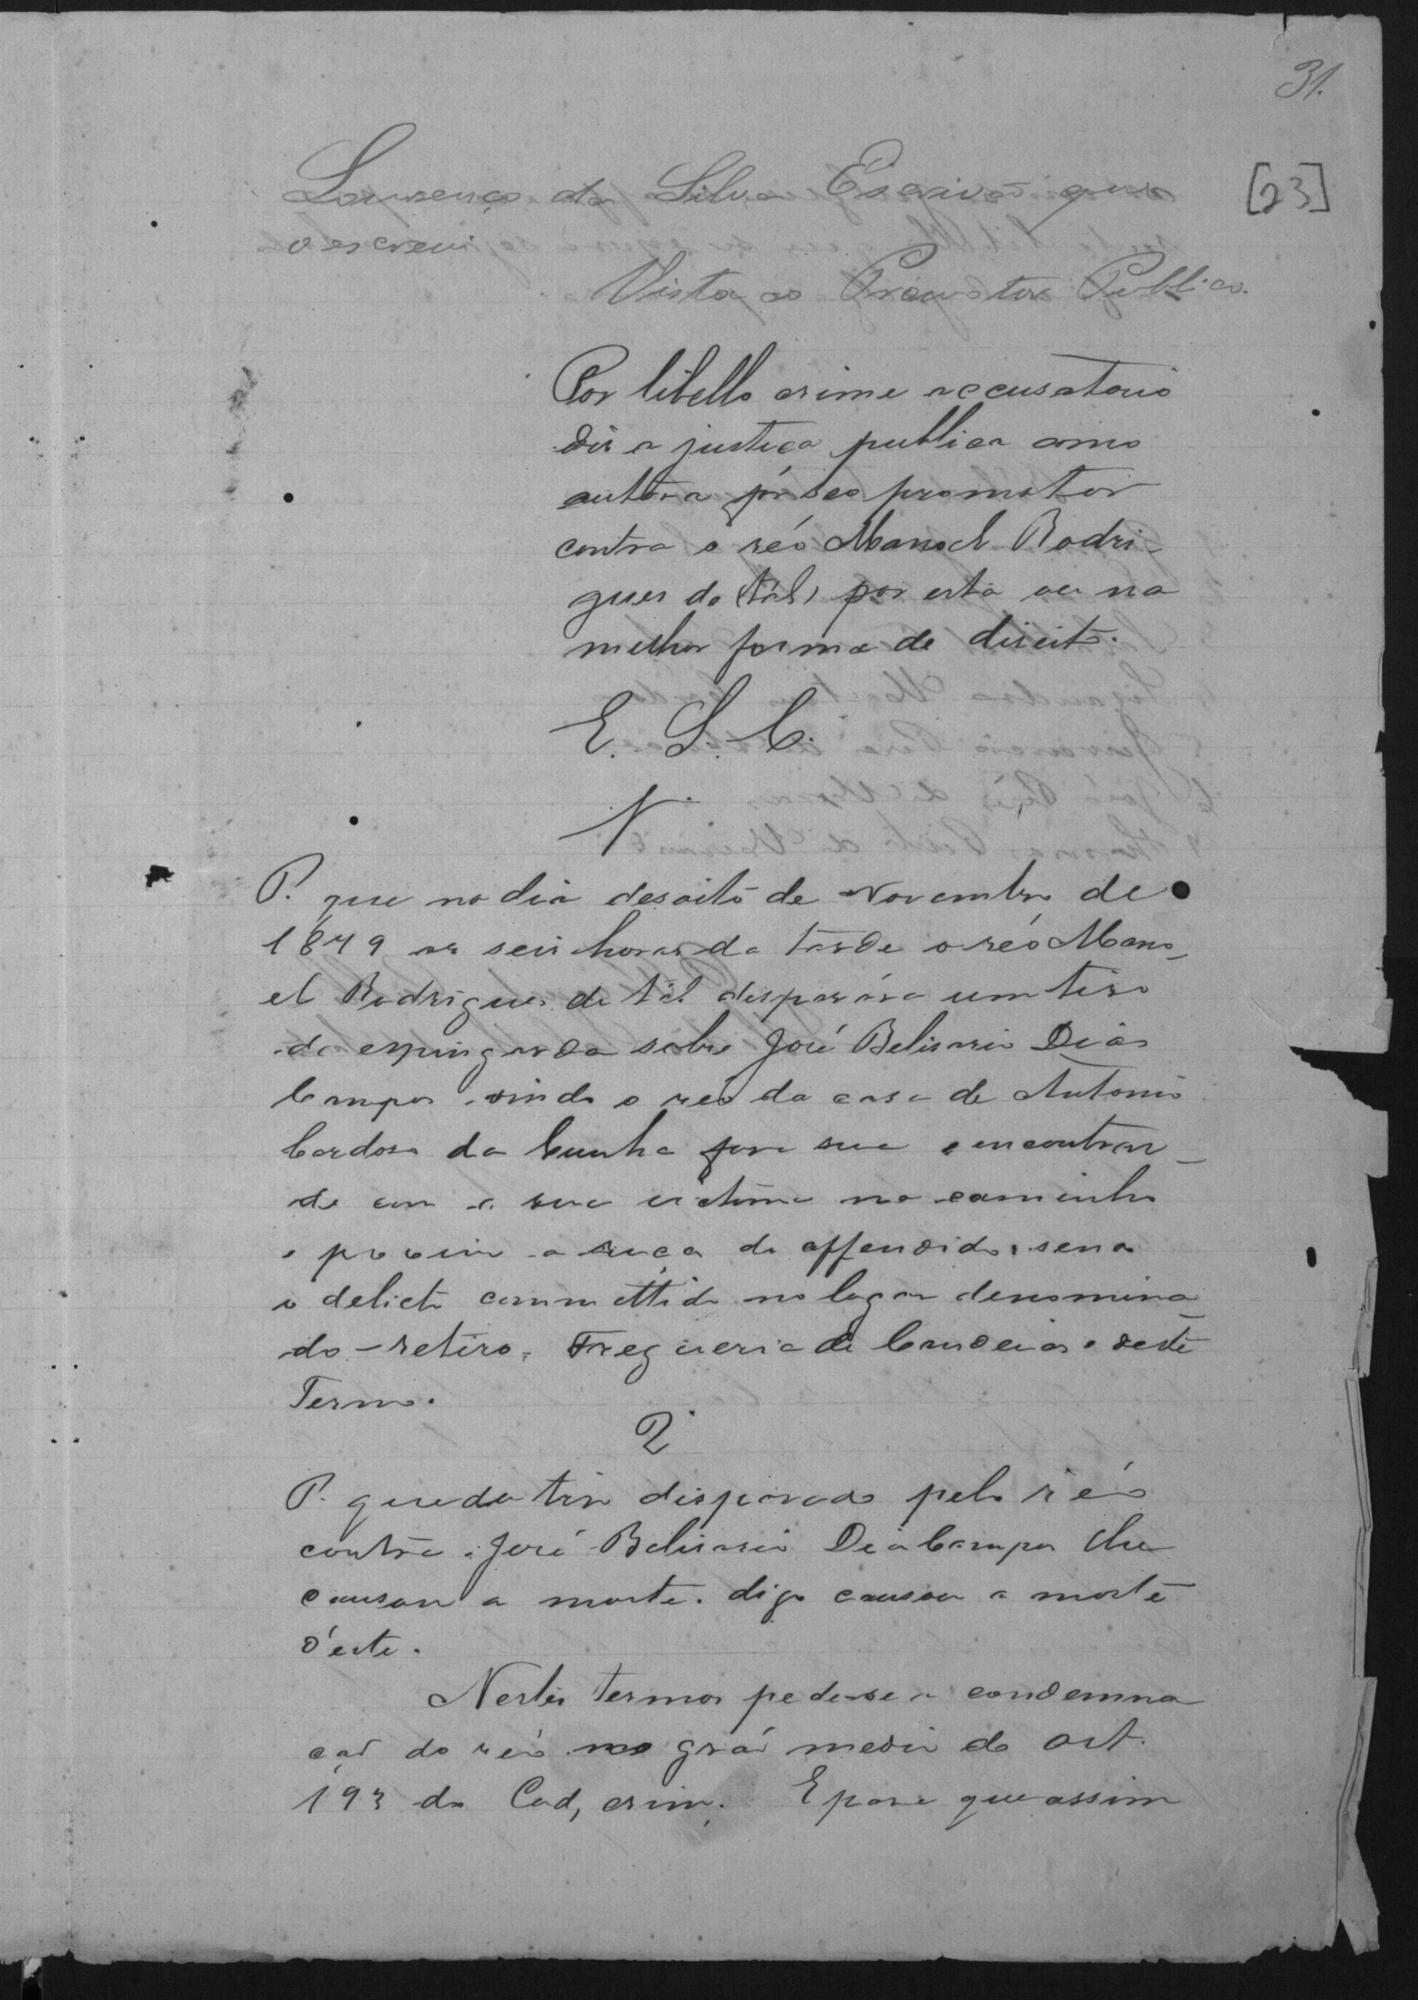 31.
[23]
Lourenço da Silva Escrivão que
o escrevi
Vista ao Promotor Publico.
Por libello crime accusatorio
diz a justiça publica como
autora pór seo promotor
contra o réo Manoel Rodri-
gues de tál, por esta ou na
melhor forma de direito.
E. S. C.
P. que no dia desoito de Novembro de
1879 as seis horas da tarde o réo Mano-
el Rodrigues de tál disparára um tiro
de espingarda sobre José Belisario Dias
Campos vindo o réo da casa de Antonio
Cardoso da Cunha para sua e encontran-
do com a sua victima no caminho
proximo a roça do offendido, sendo
o delicto committido no lugar denomina-
do retiro, Freguezia de Candeias deste
Termo.
2º
P. que do tiro disparado pelo réo
contra José Belisario Dias Campos lhe
causou a morte. digo causou a morte
d'este.
Nestes termos pede-se a condemna
ção do réo no gráo medio do art.
193 do Cod, crim. E para que assim